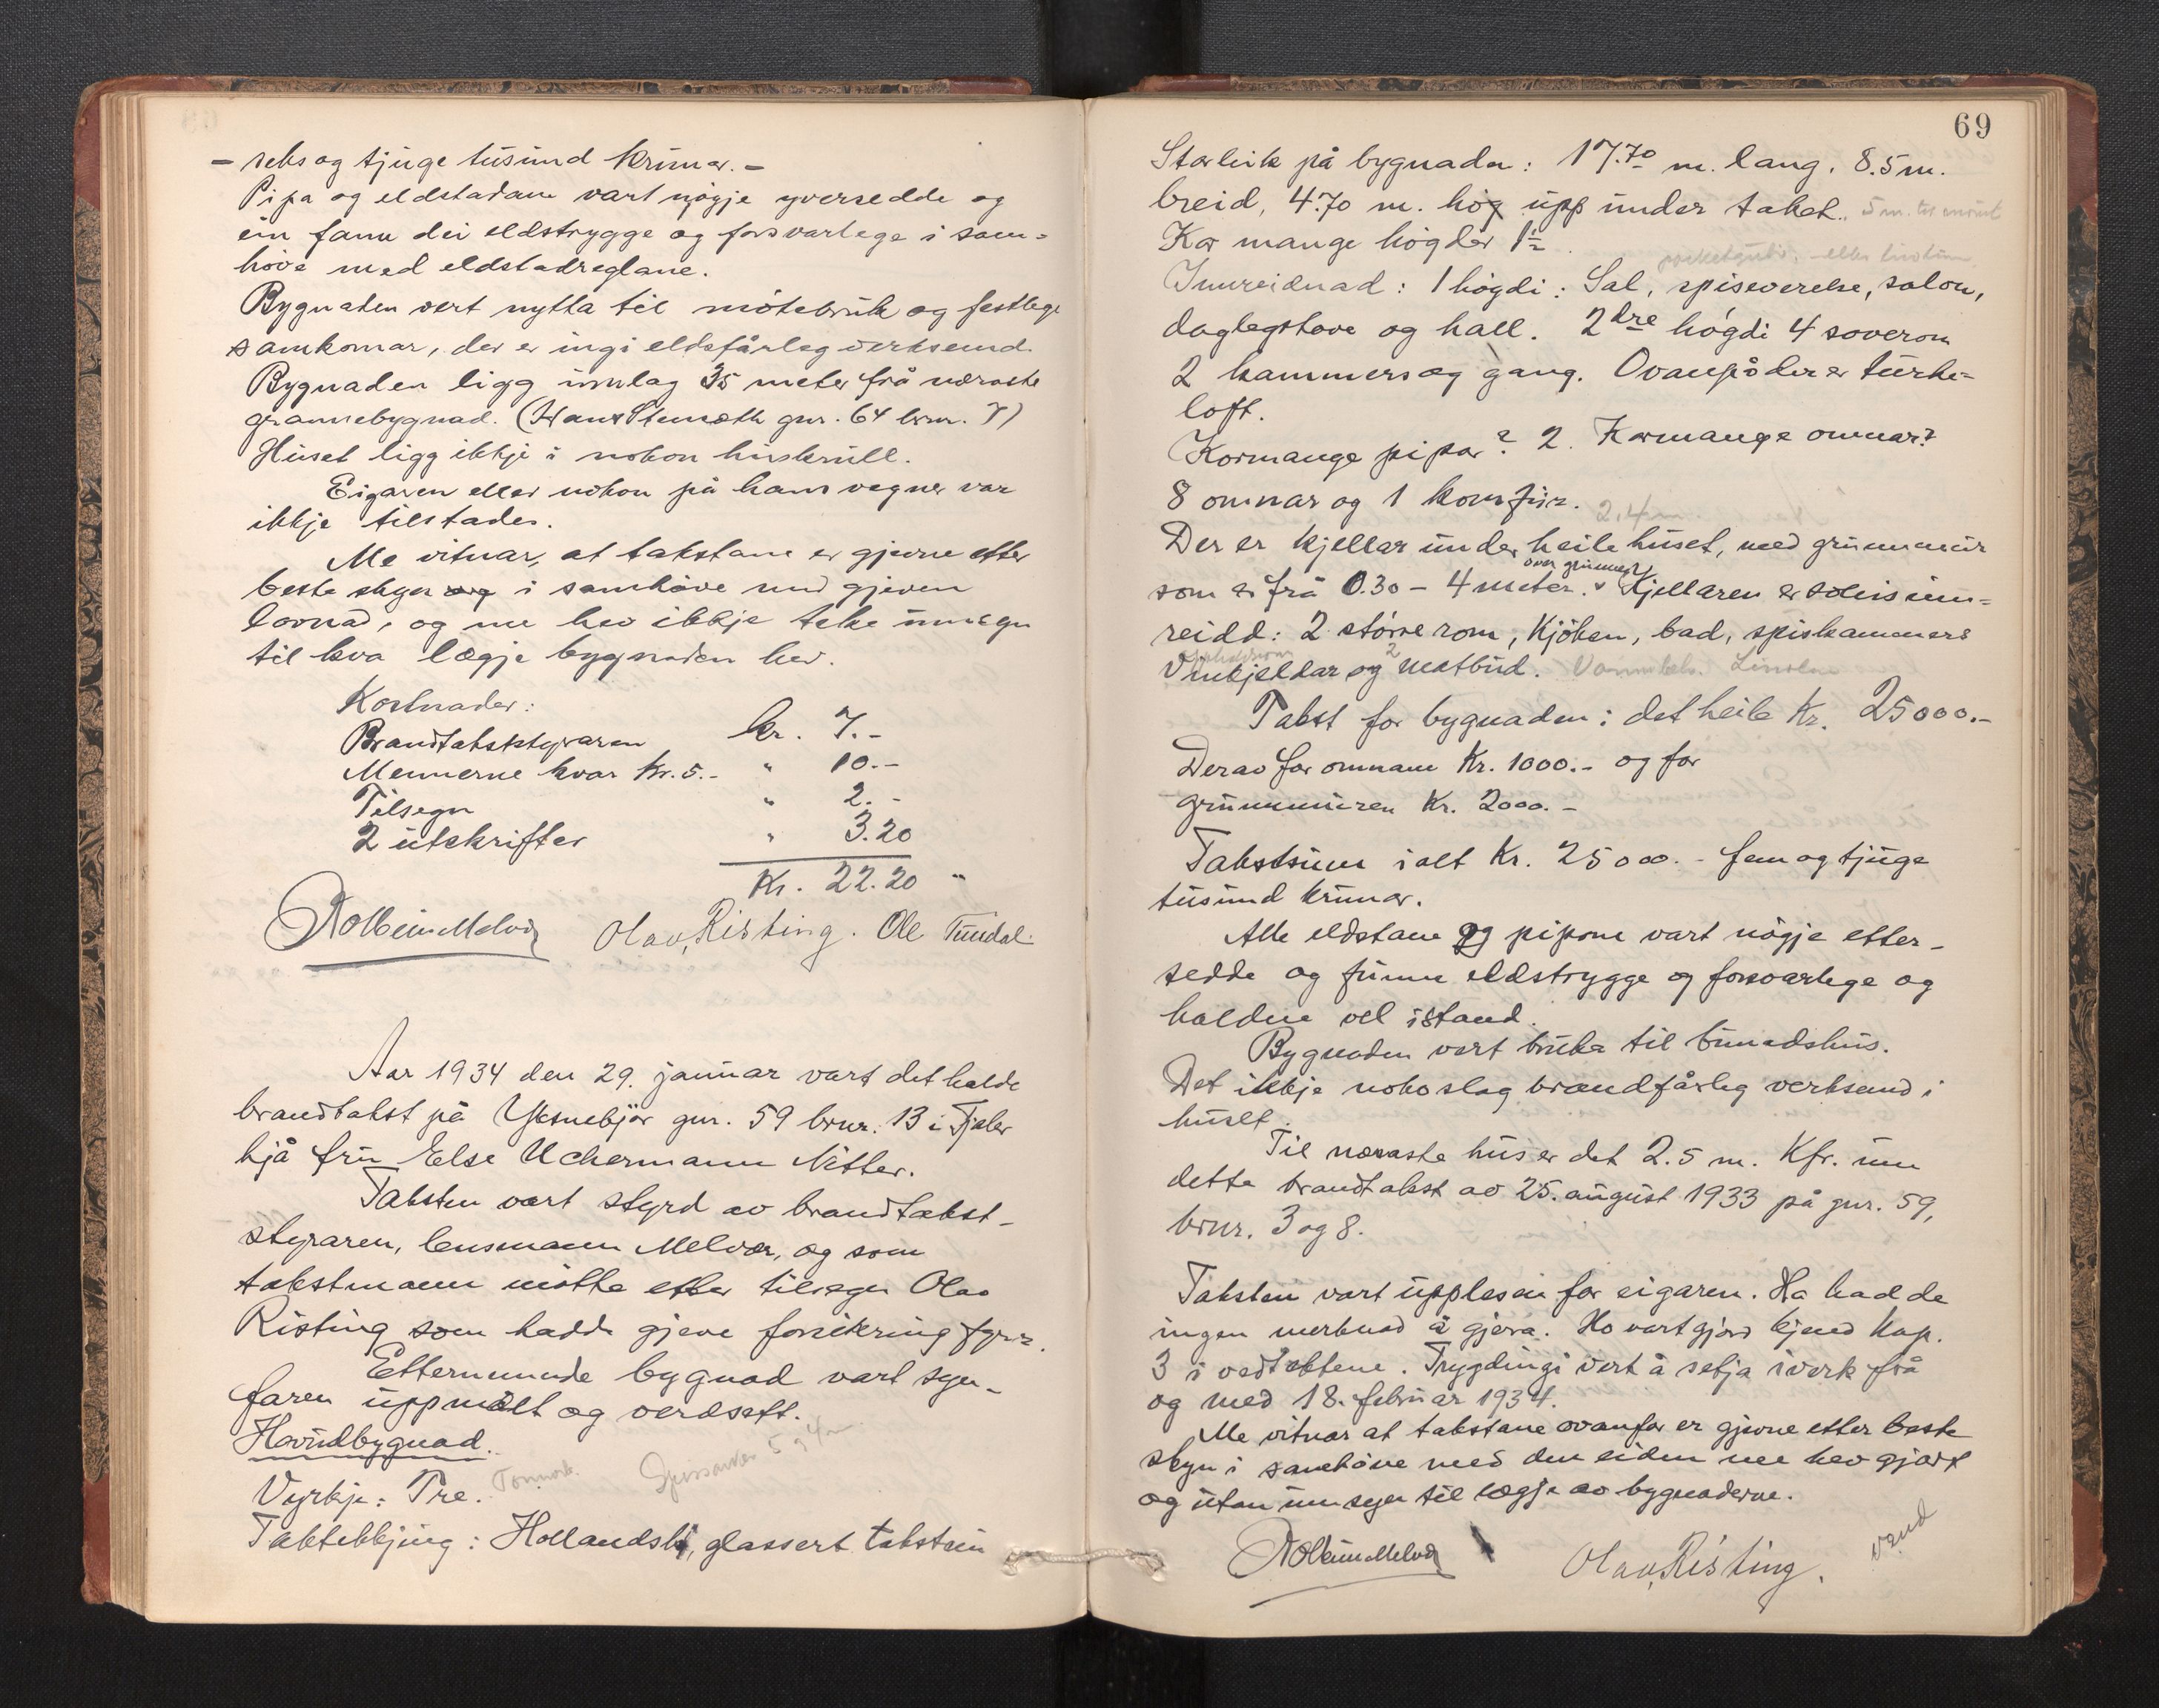 - seks og tjuge tusund krunar. -
Pipa og eldstadane vart nøgje yversedde og
ein fann dei eldstrygge og forsvarlege i sam=
høve med eldstadreglane.
Bygnaden vert nytta til møtebruk og festlege
samkomar, der er ingi eldsfårleg verksemd.
Bygnaden ligg umlag 35 meter frå næraste
grannebygnad. (Hans gnr. 64 brnr. 7)
Huset ligg ikkje i nokon huskrull.
Eigaren eller nokon på hans vegner var
ikkje tilstades.
Me vitnar, at takstane er gjevne etter
beste skyn og i samhøve med gjeven
lovnad, og me hev ikkje teke umsyn
til kva lægje bygnaden hev.
Kostnader:
Brandtakststyraren kr. 7.-
Mennerne kvar kr. 5.- " 10.-
Tilsegn " 2.-
2 utskrifter " 3.20
Kr. 22.20 "
Olav Risting. Ole Tundal.
Aar 1934 den 29. januar vart det halde
brandtakst på Yksnebjør gnr. 59 brnr. 13 i Fjaler
hjå fru Else Uchermann Nitter.
Taksten vart styrd av brandtakst-
styraren, lensmann Melvær, og som
takstmann møtte etter tilsegn Olav
Risting som hadde gjeve forsikring fyrr.
Etternemnde bygnad vart syn-
faren uppmålt og verdsett.
Hovudbygnad.
Vyrkje: Tre.
Taktekkjing: Hollandsk, glassert takstein
69
Storleik på bygnaden: 17.70 m. lang, 8.5 m.
breid, 4.70 m. høg upp under taket.
Kor mange høgder 1½.
Innreidnad: 1 høgdi: Sal, spiseverelse, salon,
daglegstove og hall. 2dre høgdi 4 soverom
2 kammers og gang. Ovanpå der er turke=
loft.
Kormange pipar? 2. Kormange omnar?
8 omnar og 1 komfyr.
2,4 m.
Der er kjellar under heile huset, med grunnmur
over grunnen
som er frå 0.30 - 4 meter. Kjellaren er soleis inn=
reidd: 2 større rom, kjøken, bad, spiskammers
2
Vinkjellar og matbud.
Takst for bygnaden: det heile Kr. 25000.-
Derav for omnane Kr. 1000.- og for
grunnmuren Kr. 2000.-
Takstsum ialt Kr. 25000.- fem og tjuge
tusund krunor.
Alle eldstane og pipone vart nøgje etter-
sedde og funne eldstrygge og forsvarlege og
haldne vel istand.
Bygnaden vert bruka til bunadshus.
Det ikkje nokoslag brandfårleg verksemd i
huset.
Til næraste hus er det 2.5 m. Kfr. um
dette brandtakst av 25. august 1933 på gnr. 59,
brnr. 3 og 8.
Taksten vart upplesen for eigaren. Ho hadde
ingen merknad å gjera. Ho vart gjord kjend kap.
3 i vedtektene. Trygdingi vert å setja iverk frå
og med 18. februar 1934.
Me vitnar at takstane ovanfor er gjevne etter beste
skyn i samhøve med den eiden me hev gjort
og utan umsyn til lægje av bygnaderne.
Olav Risting.
vend